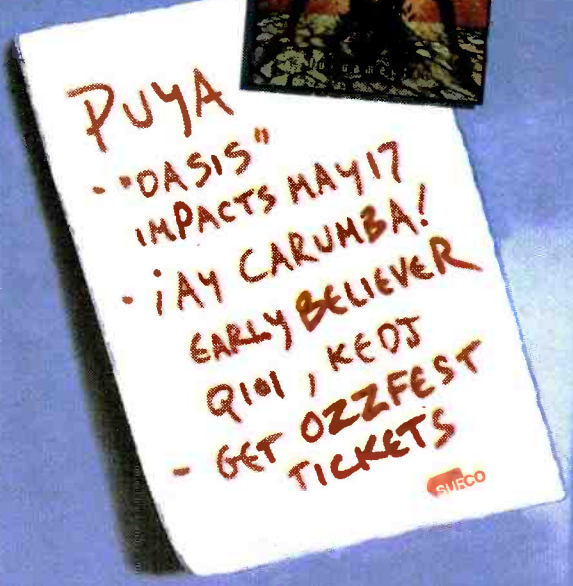 PUYA
- "OASIS"
IMPACTS MAY 17
- ¡AY CARUMBA!
EARLY BELIEVER
Q101, KEDJ
- GET OZZFEST
TICKETS
SUECO